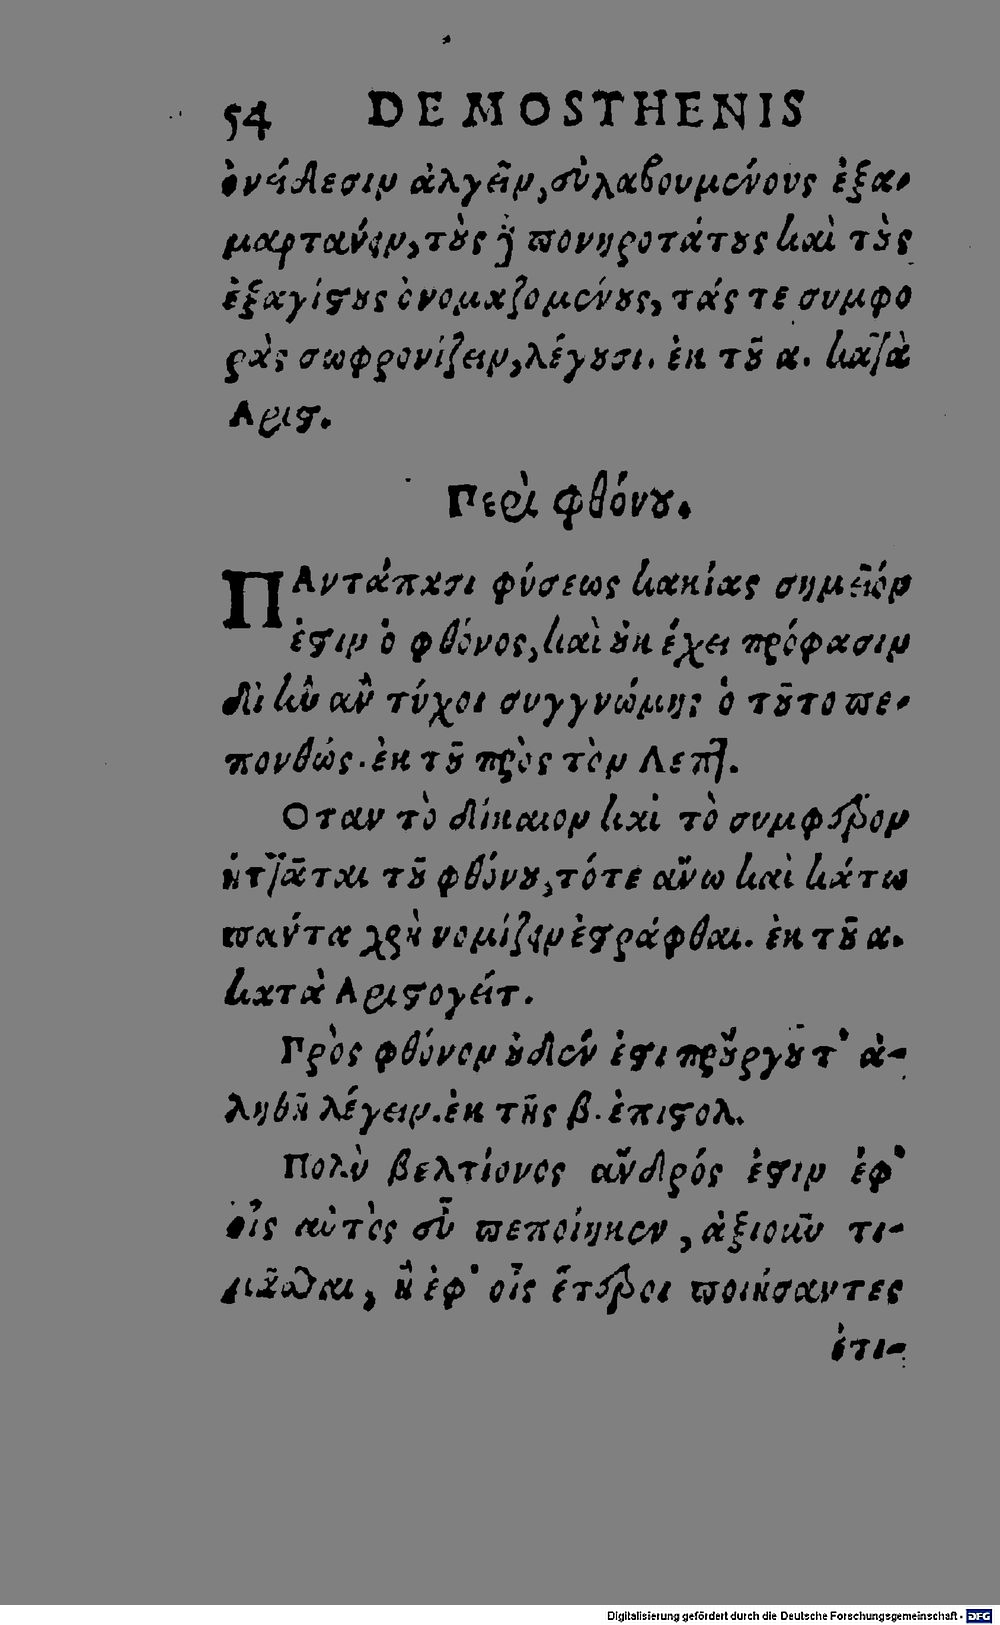 54 DEMOSTHENIS
ὀνείδεσιν ἀλγεῖν, εὐλαβουμένους ἐξα-
μαρτάνειν, τοὺς δὲ πονηροτάτους καὶ τοὺς
ἐξαγίστους ὀνομαζομένους, τάς τε συμφο
ρὰς σωφρονίζειν, λέγουσι. ἐκ τοῦ α. κατὰ
Αριστ.
Περὶ φθόνου.
ΠΑντάπασι φύσεως κακίας σημεῖόν
ἐστιν ὁ φθόνος, καὶ οὐκ ἔχει πρόφασιν
δι' ἣν ἂν τύχοι συγγνώμης ὁ τοῦτο πε-
πονθώς. ἐκ τοῦ πρὸς τὸν Λεπτ.
Οταν τὸ δίκαιον καὶ τὸ συμφέρον
ἡττᾶται τοῦ φθόνου, τότε ἄνω καὶ κάτω
πάντα χρὴ νομίζειν ἐστράφθαι. ἐκ τοῦ α.
κατὰ Αριστογείτ.
Πρὸς φθόνον οὐδέν ἐστι προὔργου τ' ἀ-
ληθῆ λέγειν. ἐκ τῆς β. ἐπιστολ.
Πολὺ βελτίονος ἀνδρός ἐστιν ἐφ'
οἷς αὐτὸς εὖ πεποίηκεν, ἀξιοῦν τι-
μᾶσθαι, ἢ ἐφ' οἷς ἕτεροι ποιήσαντες
ἐτι-
Digitalisierung gefördert durch die Deutsche Forschungsgemeinschaft - DFG